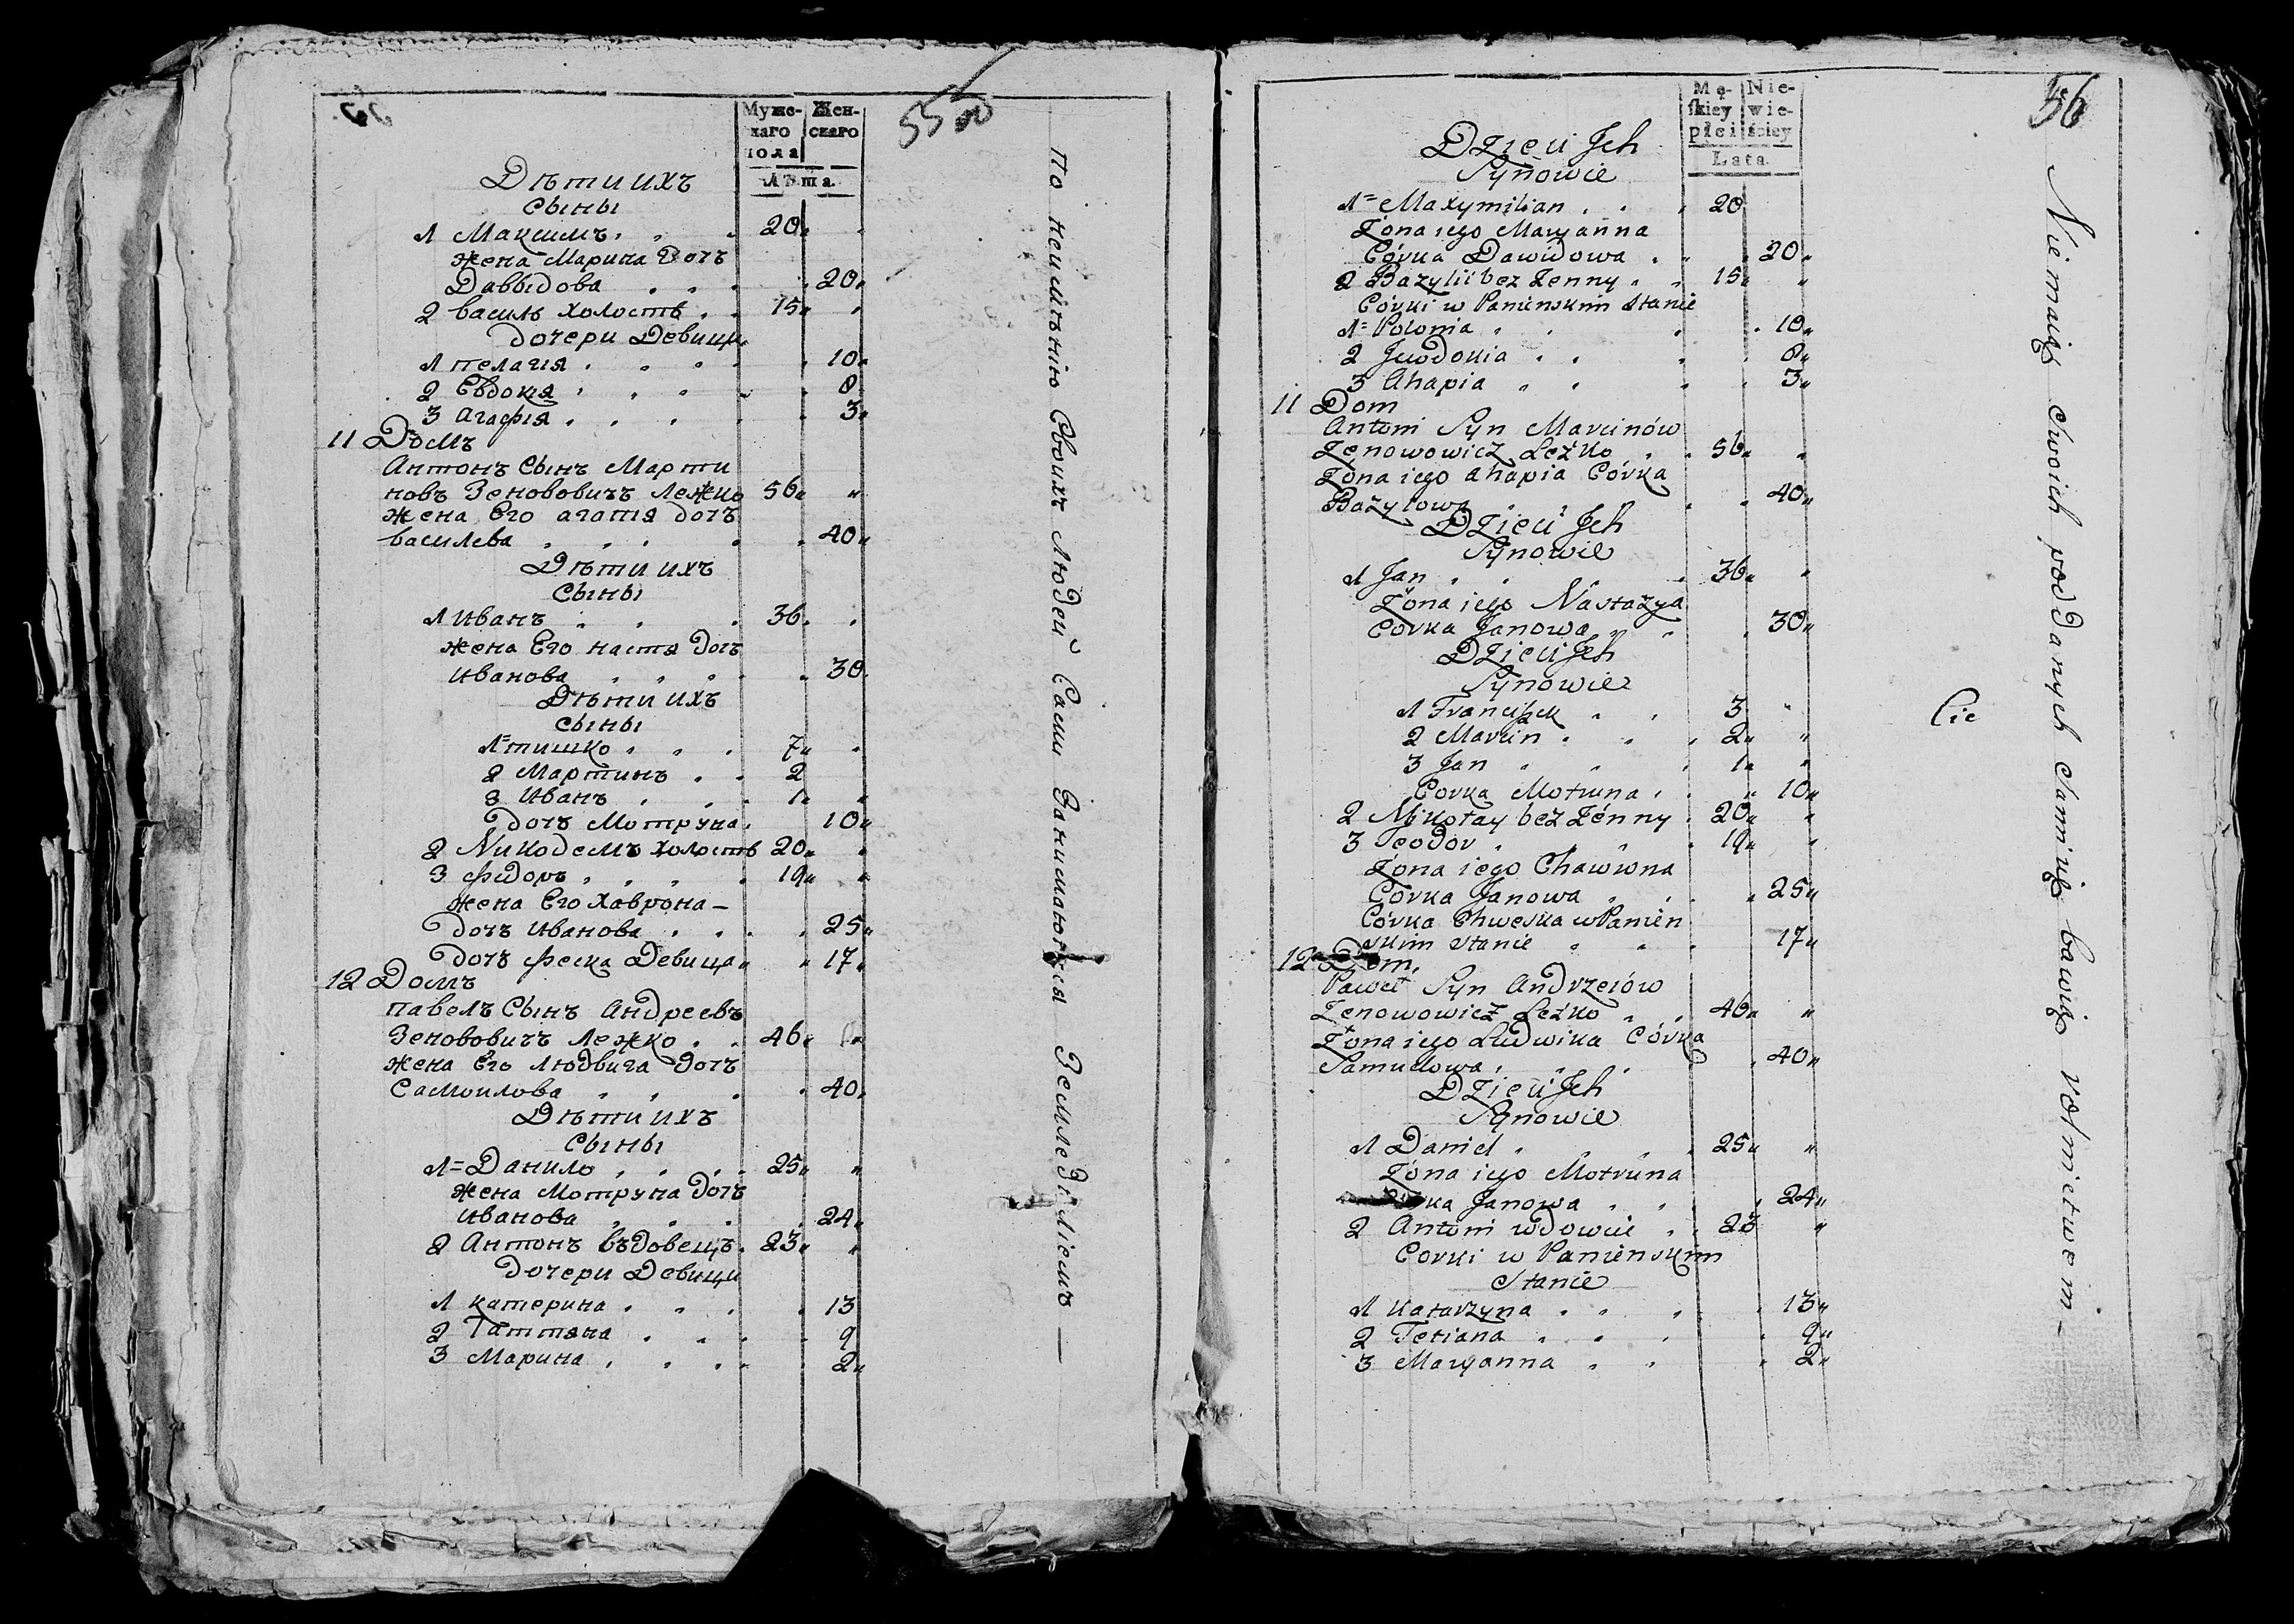 55 об
Муже-
скаго
пола
Жен-
скаго
Лѣта.
Дѣти ихъ
Сыны
1 Максимъ 20
жена Марина Дочь
Давыдова 20
2 василь холостъ 15
дочери Девицы
1 пелагія 10
2 Евдокія 8
3 агафія 3
11 Домъ
Антонъ Сынъ Марти
новъ Зенововичъ Лежко 56
жена Его агатія дочь
василева 40
Дѣти ихъ
Сыны
1 Иванъ 36
жена Его настя дочь
Иванова 30
Дѣти ихъ
сыны
1 тишко 7
2 Мартинъ 2
3 Иванъ 1
дочь Мотруна 10
2 Никодемъ холостъ 20
3 федоръ 19
жена Его Хаврона
дочь Иванова 25
дочь феска Девица 17
12 Домъ
павелъ Сынъ Андреевъ
Зенововичъ Лежко 46
жена Его людвига дочь
Самоилова 40
Дѣти ихъ
Сыны
1 Данило 25
жена Мотруна дочь
Иванова 24
2 Антонъ въдовецъ 23
дочери Девицы
1 катерина 13
2 Таттяна 9
3 Марина 2
По неимѣнію Своихъ Людей Сами Занимаются Земледѣліемъ —
56
Mę-
skiey
płci
Nie-
wie-
ściey
Lata.
Dzieci Jch
Synowie
1 Maxymilian 20
Żona iego Maryanna
Córka Dawidowa 20
2 Bazyli bez Żenny 15
Córki w Panienskim stanie
1 Polonia 10
2 Jewdokia 8
3 Ahapia 3
11 Dom
Antoni Syn Marcinów
Zenowowicz Leżko 56
Żona iego ahapia Córka
Bazylowa 40
Dzieci Jch
Synowie
1 Jan 36
Żona iego Nastazya
Córka Janowa 30
Dzieci Jch
Synowie
1 Franciszek 3
2 Marcin 2
3 Jan 1
Corka Motruna 10
2 Mikołay bez Żenny 20
3 Teodor 19
Żona iego Chawrona
Córka Janowa 25
Córka Chweska w Panien
skim stanie 17
12 Dom
Paweł Syn Andrzeiów
Zenowowicz Leżko 46
Żona iego Ludwika Córka
Samuelowa 40
Dzieci Jch
Synowie
1 Daniel 25
Żona iego Motruna
Córka Janowa 24
2 Antoni wdowiec 23
Corki w Panienskim
Stanie
1 Katarzyna 13
2 Tetiana 9
3 Maryanna 2
Niemaiąc swoich poddanych Sami się bawią rolnictwem —